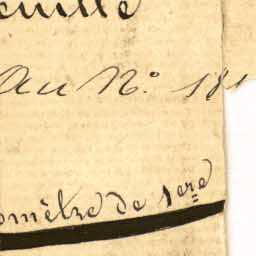 euille
Au N.º 181
omètre de 1ere